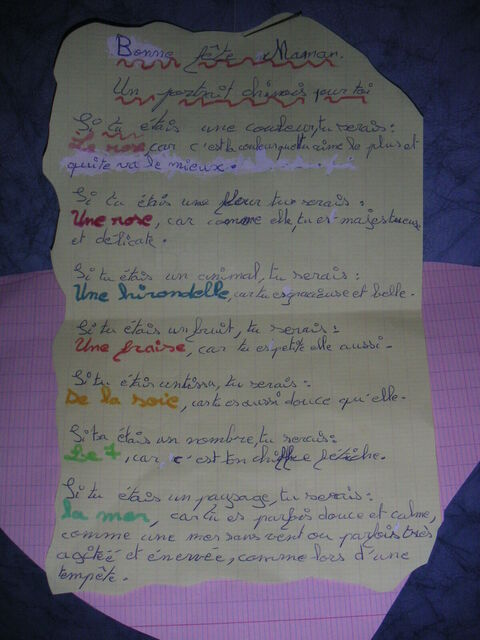 Bonne fête Maman.
Un portrait chinois pour toi
Si tu étais une couleur, tu serais:
Le rose, car c'est la couleur que tu aime le plus et
qui te va le mieux.
Si tu étais une fleur tu serais:
Une rose, car comme elle, tu es majestueuse
et délicate.
Si tu étais un animal, tu serais:
Une hirondelle, car tu es gracieuse et belle.
Si tu étais un fruit, tu serais:
Une fraise, car tu es petite elle aussi.
Si tu étais un tissu, tu serais:
De la soie, car tu es aussi douce qu'elle.
Si tu étais un nombre, tu serais:
Le 7, car c'est ton chiffre fétiche.
Si tu étais un paysage, tu serais:
la mer, car tu es parfois douce et calme,
comme une mer sans vent ou parfois très
agitéé et énervée, comme lors d'une
tempête.